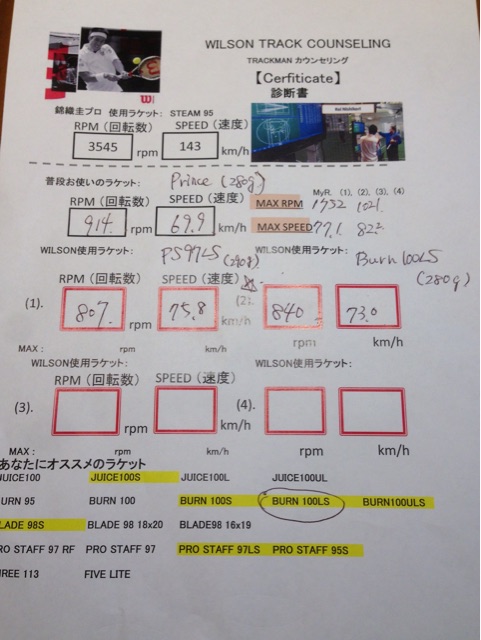 WILSON TRACK COUNSELING
TRACKMAN カウンセリング
【Cerfiticate】
診断書
錦織圭プロ 使用ラケット: STEAM 95
RPM (回転数) SPEED (速度)
3545 rpm 143 km/h
普段お使いのラケット: Prince (280g)
MyR. (1), (2), (3), (4)
RPM (回転数) SPEED (速度)
MAX RPM
914. rpm 69.9 km/h
MAX SPEED 77.1
WILSON使用ラケット: PS97LS (290g) WILSON使用ラケット: Burn 100LS (280g)
RPM (回転数) SPEED (速度)
(1). 807. rpm 75.8 km/h (2). 840 rpm 73.0 km/h
MAX : rpm km/h rpm km/h
WILSON使用ラケット: WILSON使用ラケット:
RPM (回転数) SPEED (速度)
(3). rpm km/h (4). rpm km/h
MAX : rpm km/h rpm km/h
あなたにオススメのラケット
JUICE100 JUICE100S JUICE100L JUICE100UL
BURN 95 BURN 100 BURN 100S BURN 100LS BURN100ULS
BLADE 98S BLADE 98 18x20 BLADE98 16x19
PRO STAFF 97 RF PRO STAFF 97 PRO STAFF 97LS PRO STAFF 95S
113 FIVE LITE